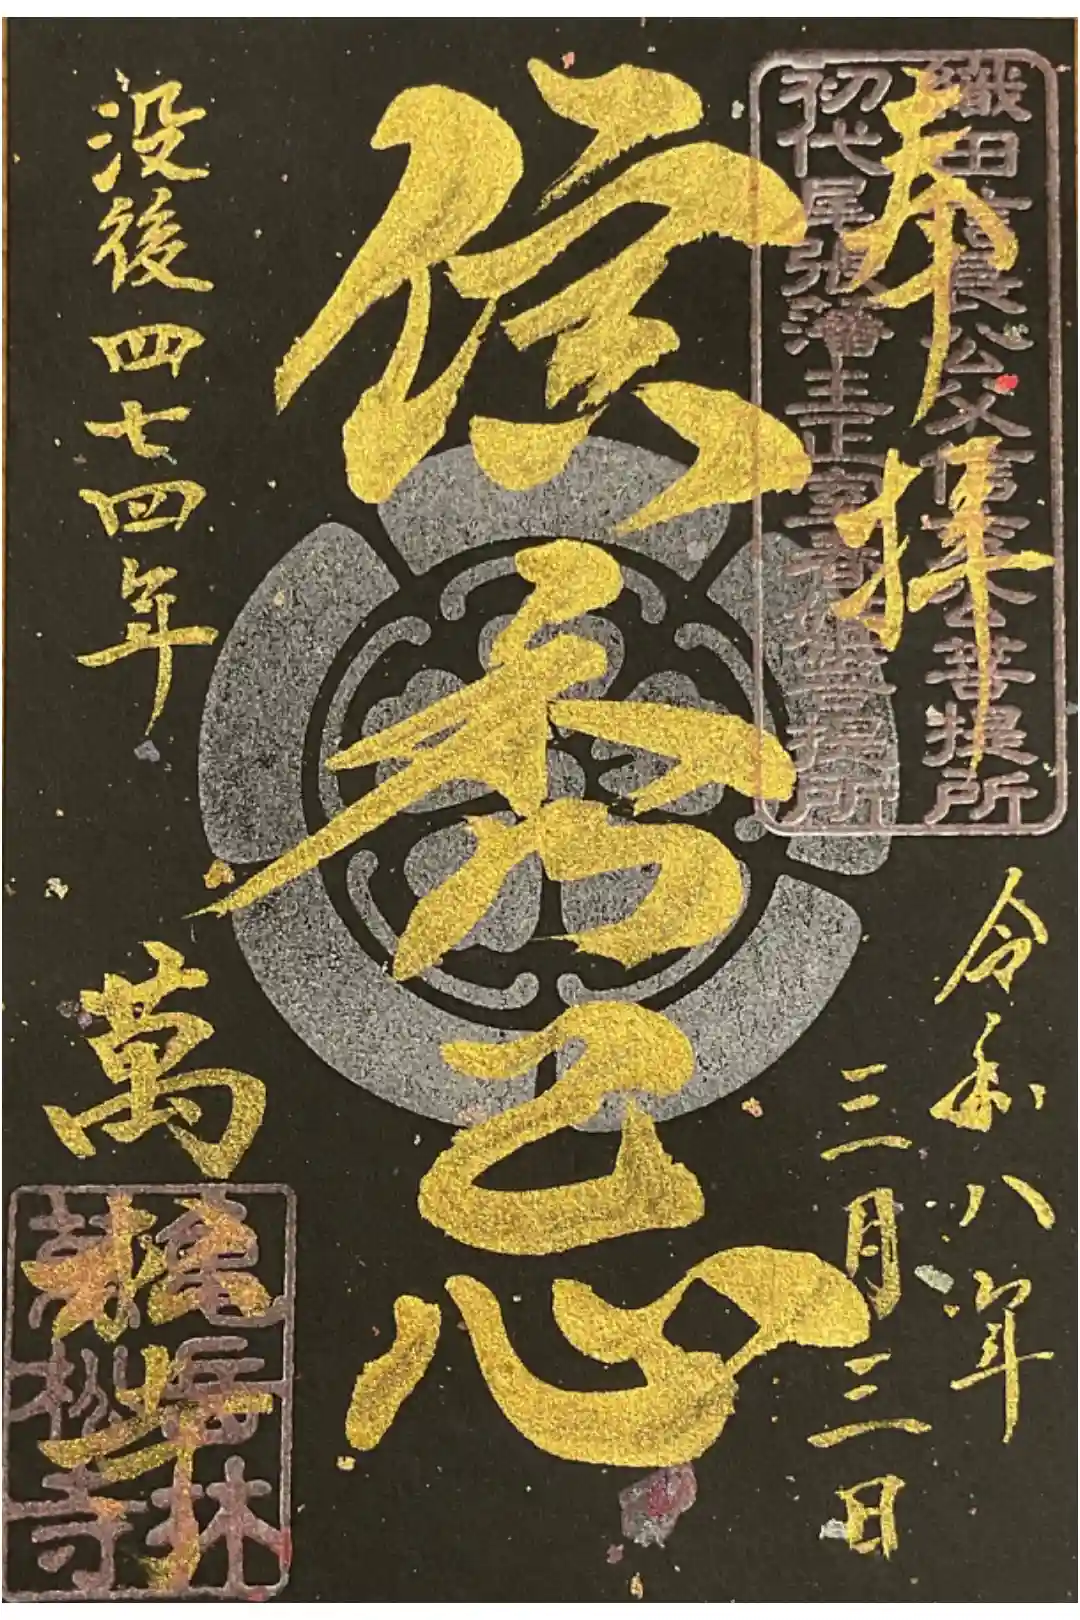 奉拝
織田信長公父信秀公菩提所
初代尾張藩主正室春姫菩提所
令和八年
三月三日
信秀忌
没後四七四年
萬松寺
亀岳林
萬松寺